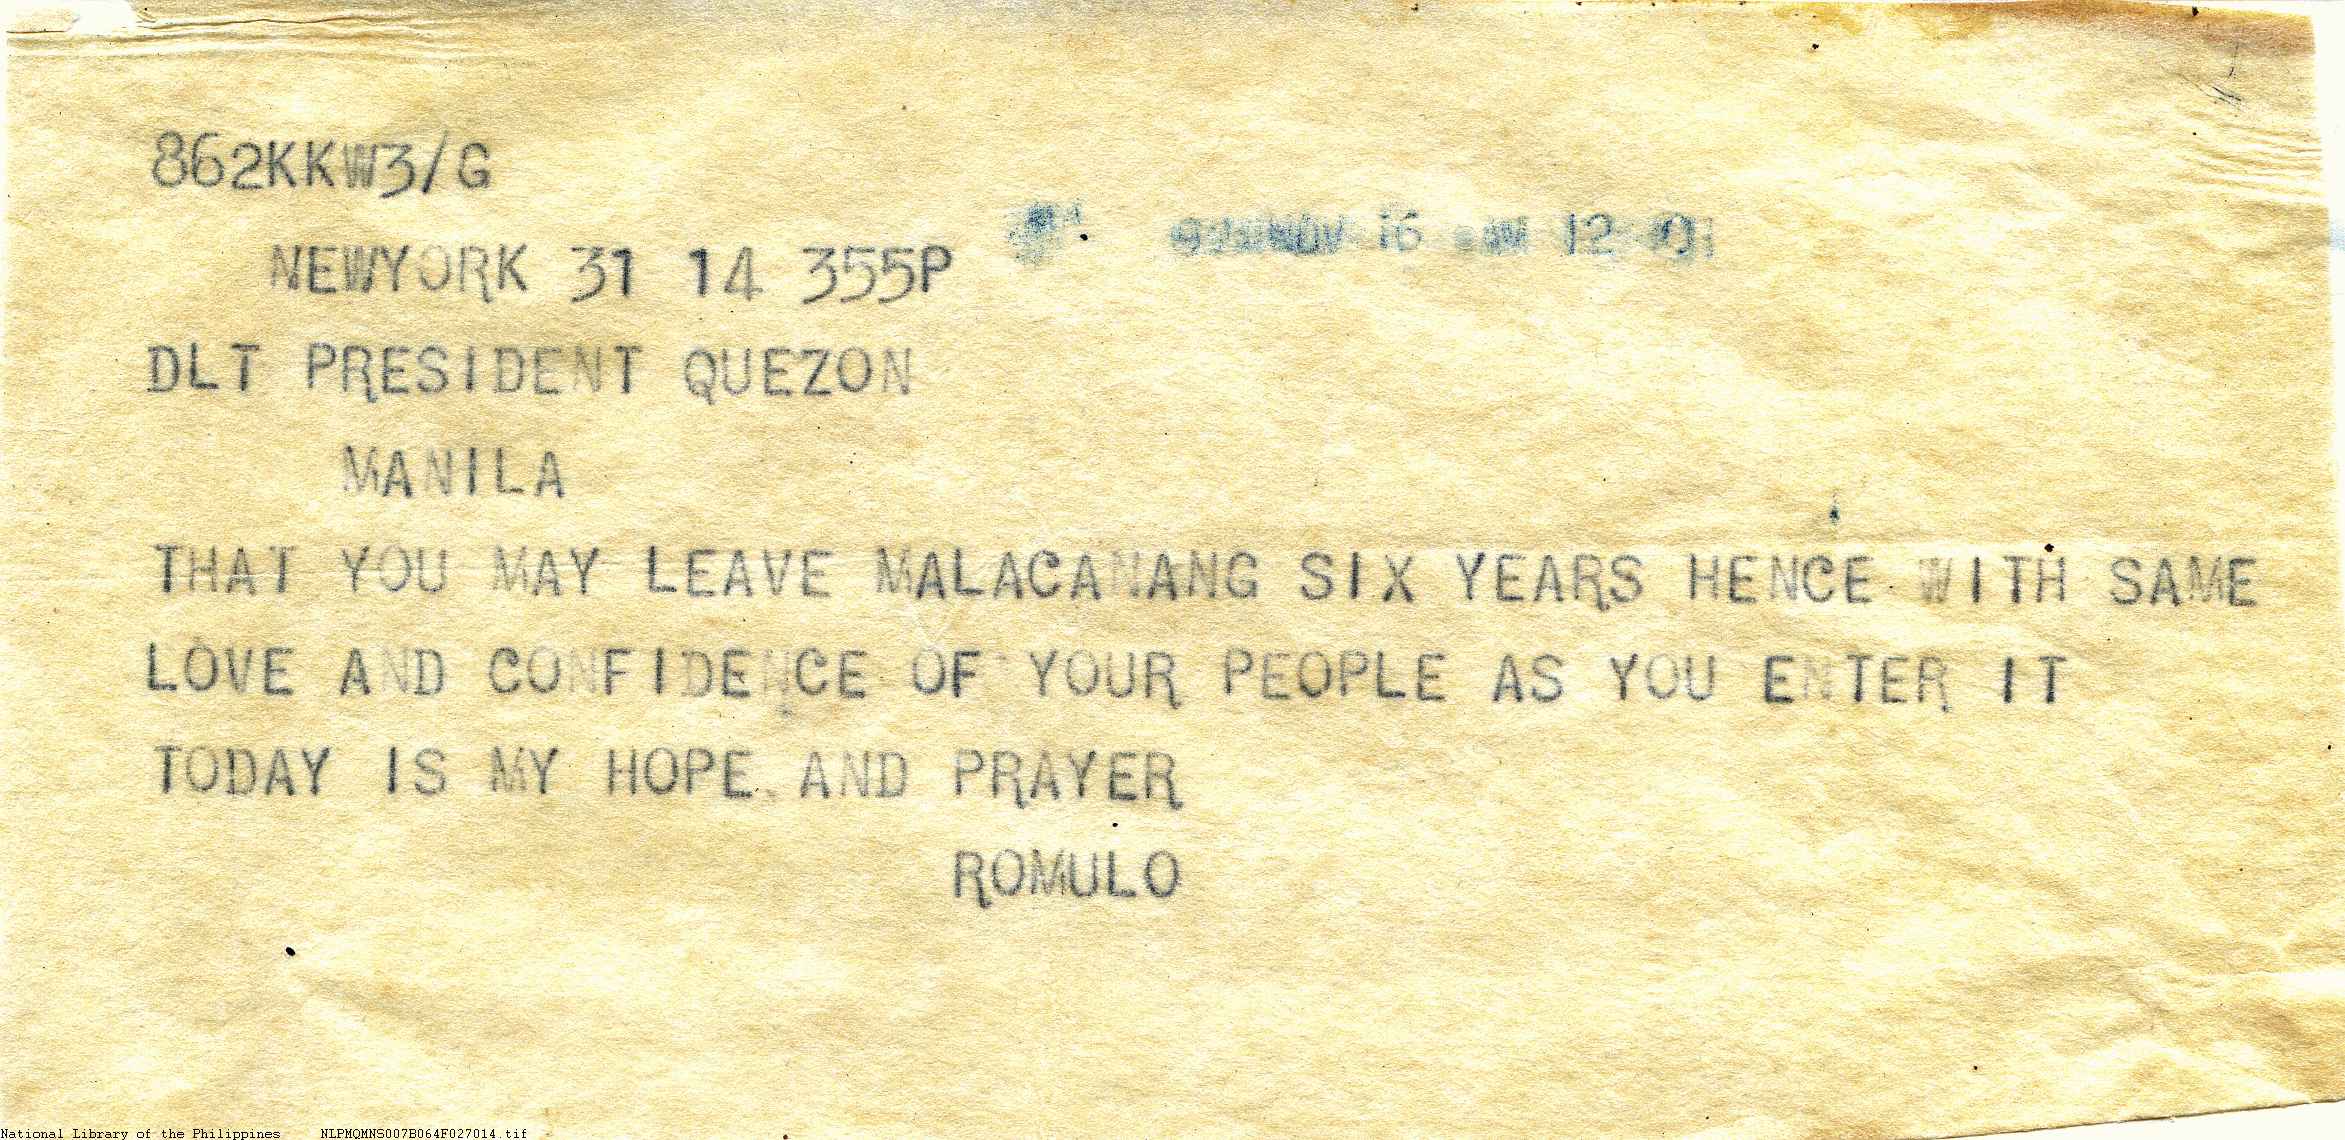 862KKW3/G
NEWYORK 31 14 355P
NOV 16 12
DLT PRESIDENT QUEZON
MANILA
THAT YOU MAY LEAVE MALACANANG SIX YEARS HENCE WITH SAME
LOVE AND CONFIDENCE OF YOUR PEOPLE AS YOU ENTER IT
TODAY IS MY HOPE AND PRAYER
ROMULO
National Library of the Philippines NLPMQMNS007B064F027014.tif